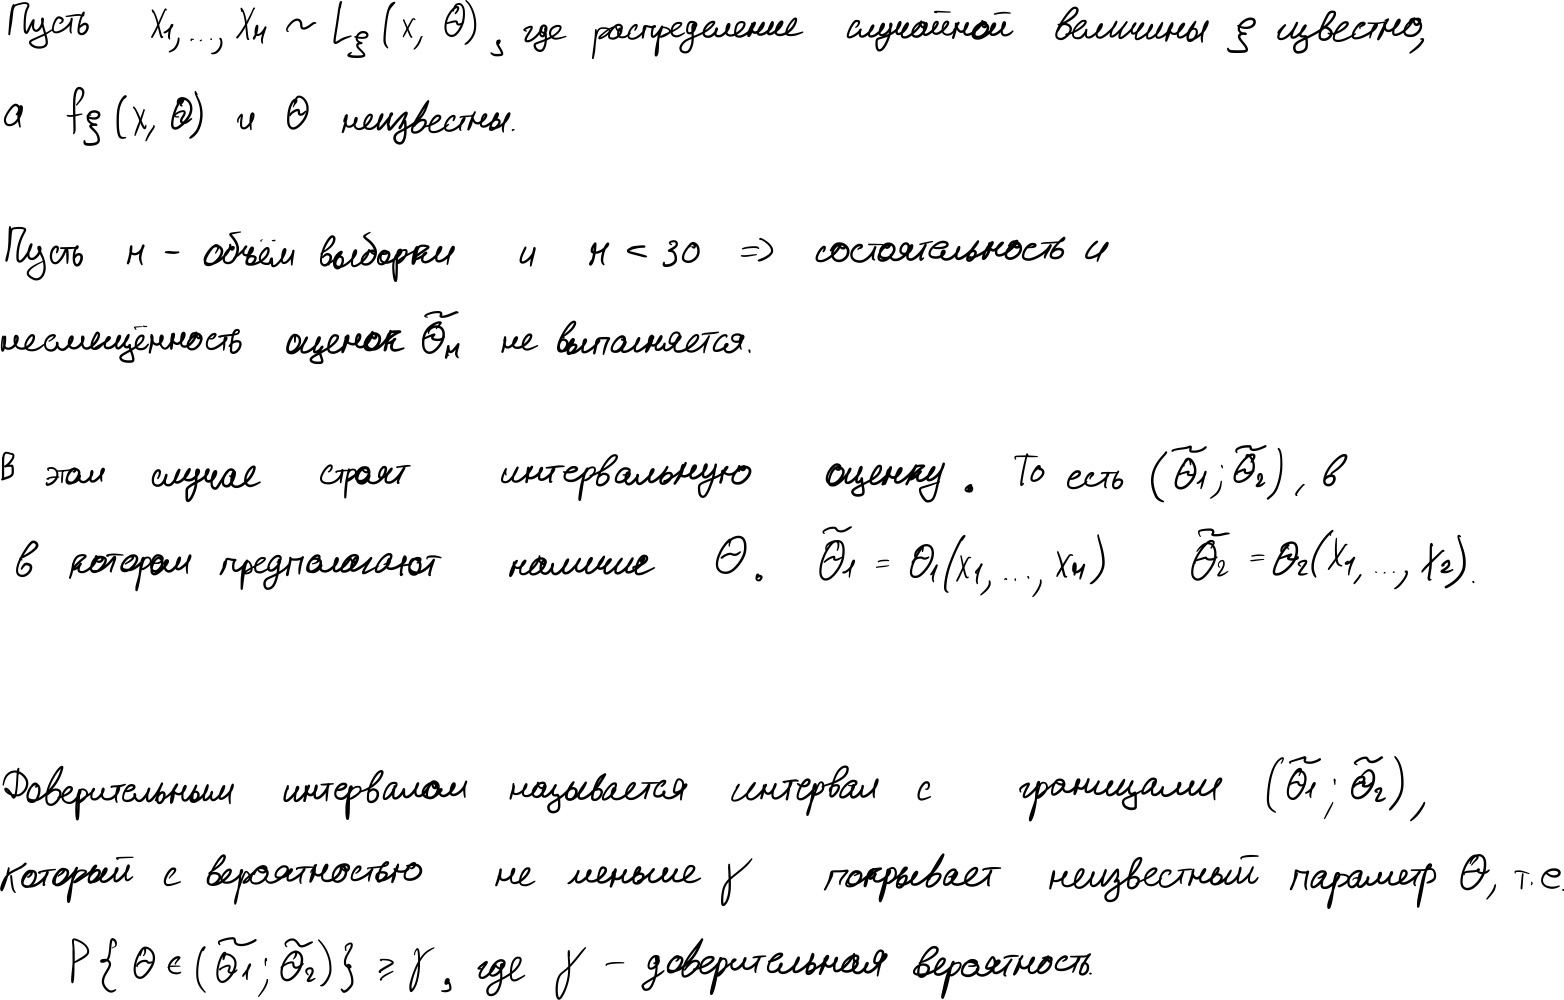 Пусть x₁,...,xₙ ~ L_ξ(x, θ), где распределение случайной величины ξ известно,
а f_ξ(x, θ) и θ неизвестны.
Пусть n – объём выборки и n < 30 => состоятельность и
несмещённость оценок θ̃ₙ не выполняется.
В этом случае строят интервальную оценку. То есть (θ̃₁; θ̃₂), в
в котором предполагают наличие θ. θ̃₁ = θ₁(x₁,...,xₙ) θ̃₂ = θ₂(x₁,...,x₂).
Доверительным интервалом называется интервал с границами (θ̃₁; θ̃₂),
который с вероятностью не меньше γ покрывает неизвестный параметр θ, т.е.
P{θ ∈ (θ̃₁; θ̃₂)} ⩾ γ, где γ – доверительная вероятность.